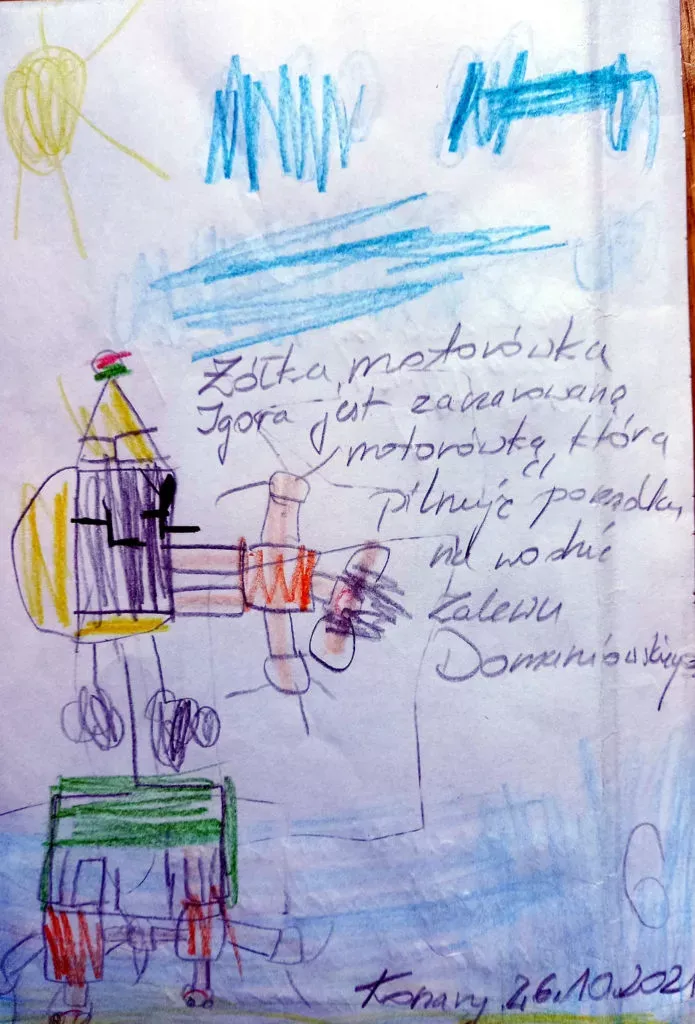 Żółta motorówka
Igora jest zaczarowaną
motorówką, która
pilnuje porządku
na wodzie
Zalewu
Domaniowskiego
6
Konary, 26.10.2021